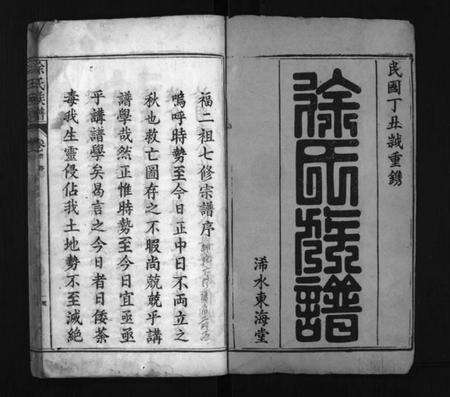 民國丁丑誠重鐫
徐氏族譜
浠水東海堂
福二祖七修宗譜序
嗚呼時勢至今日正中日不兩立之
秋也救亡圖存之不暇尚兢兢乎講
譜學哉然正惟時勢至今日宜亟亟
乎講譜學矣曷言之今日者日倭荼
毒我生靈侵佔我土地勢不至滅絕
徐氏族譜